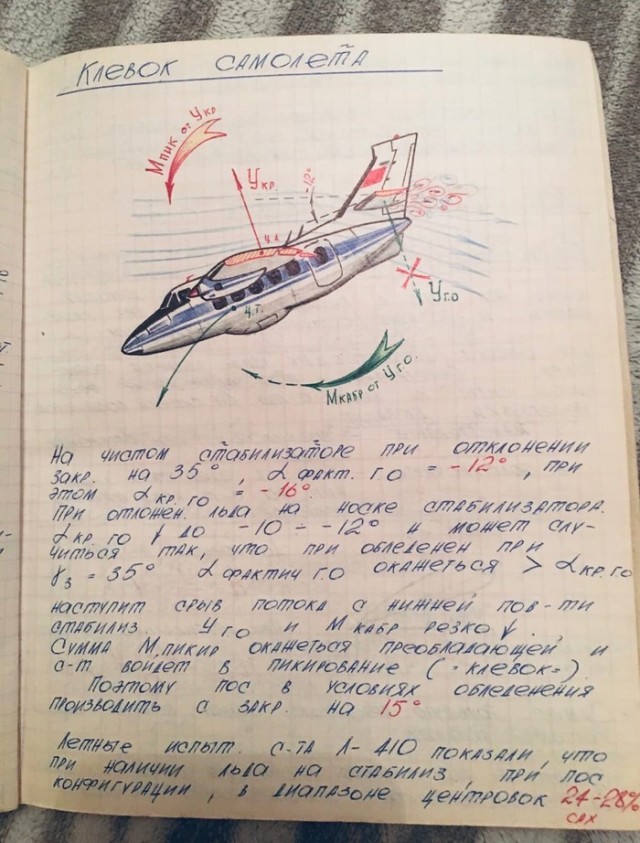 КЛЕВОК САМОЛЕТА
Мпик от Укр
Укр.
-12°
ц.д.
ц.т.
Уг.о
Мкабр от Уг.о.
НА ЧИСТОМ СТАБИЛИЗАТОРЕ ПРИ ОТКЛОНЕНИИ
ЗАКР. НА 35°, α ФАКТ. ГО = -12°, ПРИ
ЭТОМ α КР. ГО = -16°
ПРИ ОТЛОЖЕН. ЛЬДА НА НОСКЕ СТАБИЛИЗАТОРА.
α КР. ГО ↓ ДО -10 ÷ -12° И МОЖЕТ СЛУ-
ЧИТЬСЯ ТАК, ЧТО ПРИ ОБЛЕДЕНЕН ПРИ
γз = 35° α ФАКТИЧ ГО ОКАЖЕТЬСЯ > α КР. ГО
НАСТУПИТ СРЫВ ПОТОКА С НИЖНЕЙ ПОВ-ТИ
СТАБИЛИЗ. У ГО И М КАБР РЕЗКО ↓.
СУММА М.ПИКИР ОКАЖЕТЬСЯ ПРЕОБЛАДАЮЩЕЙ И
С-Т ВОЙДЕТ В ПИКИРОВАНИЕ (=КЛЕВОК=).
ПОЭТОМУ ПОС В УСЛОВИЯХ ОБЛЕДЕНЕНИЯ
ПРОИЗВОДИТЬ С ЗАКР. НА 15°
ЛЕТНЫЕ ИСПЫТ. С-ТА Л-410 ПОКАЗАЛИ, ЧТО
ПРИ НАЛИЧИИ ЛЬДА НА СТАБИЛИЗ, ПРИ ПОС
КОНФИГУРАЦИИ, В ДИАПАЗОНЕ ЦЕНТРОВОК 24-28%
САХ